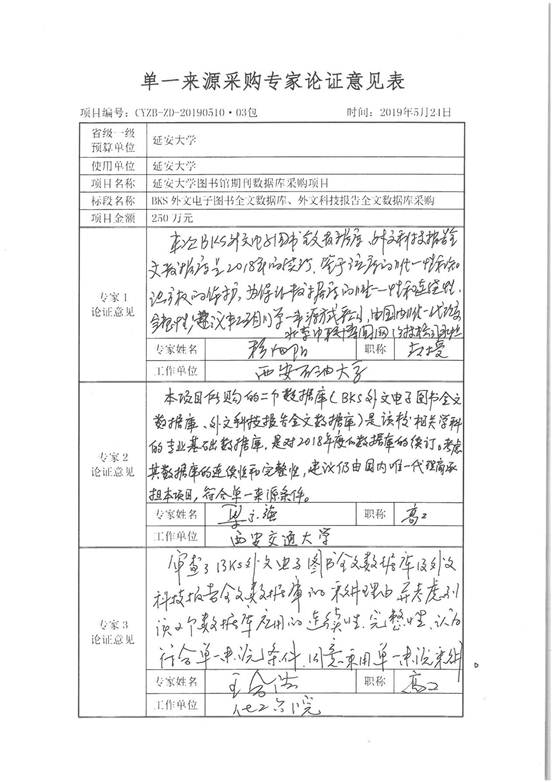 单一来源采购专家论证意见表
项目编号：CYZB-ZD-20190510·03包 时间：2019年5月24日
省级一级预算单位 延安大学
使用单位 延安大学
项目名称 延安大学图书馆期刊数据库采购项目
标段名称 BKS 外文电子图书全文数据库、外文科技报告全文数据库采购
项目金额 250 万元
专家 1 论证意见
本次BKS外文电子图书全文数据库 外文科技报告全
文数据库是2018年的续订，鉴于该库的唯一性和知
识产权的保护，为保证数据库的唯一性和连续性、
专家姓名 职称 教授
工作单位 西安石油大学
专家 2 论证意见
本项目所购的二个数据库（BKS外文电子图书全文
数据库、外文科技报告全文数据库）是该校相关学科
的专业基础数据库，是对2018年度的数据库的续订。考虑
其数据库的连续性和完整性，建议仍由国内唯一代理商承
担本项目，符合单一来源条件。
专家姓名 职称 高工
工作单位 西安交通大学
专家 3 论证意见
审查了BKS外文电子图书全文数据库及外文
科技报告全文数据库的采购理由并考虑到
该2个数据库应用的连续性、完整性，认为
符合单一来源条件，同意采用单一来源采购。
专家姓名 职称 高工
工作单位